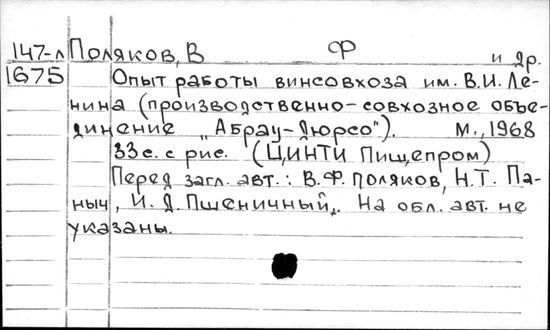 147-л Поляков, В Ф и др.
1675 Опыт работы винсовхоза им. В.И. Ле-
нина (производственно-совхозное объе-
динение „Абрау-Дюрсо"). М., 1968
33 с. с рис. (ЦИНТИ Пищепром)
Перед загл. авт.: В.Ф. Поляков, Н.Т. Па-
ныч, И.Д. Пшеничный. На обл. авт. не
указаны.